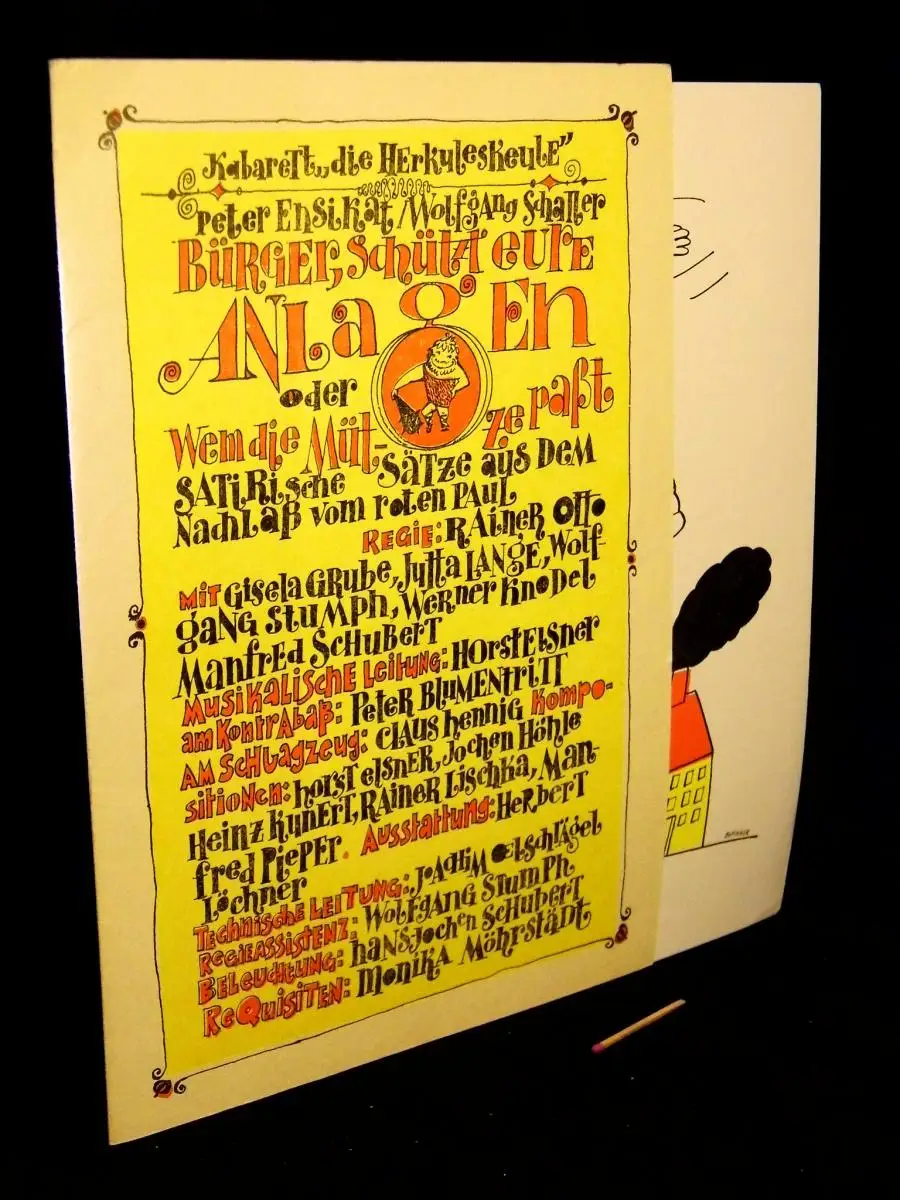 Kabarett „die Herkuleskeule”
Peter Ensikat/Wolfgang Schaller
Bürger, schützt eure
Anlagen
oder
Wem die Müt-ze paßt
Satirische Sätze aus dem
Nachlaß vom roten Paul
Regie: Rainer Otto
Mit Gisela Grube, Jutta Lange, Wolf-
gang Stumph, Werner Knodel
Manfred Schubert
Musikalische Leitung: Horst Elsner
am Kontrabaß: Peter Blumentritt
am Schlagzeug: Claus Hennig Kompo-
sitionen: Horst Elsner, Jochen Höhle
Heinz Kunert, Rainer Lischka, Man-
fred Pieper. Ausstattung: Herbert
Löchner
Technische Leitung: Joachim Oelschlägel
Regieassistenz: Wolfgang Stumph
Beleuchtung: Hansjochen Schubert
Requisiten: Monika Möhrstädt